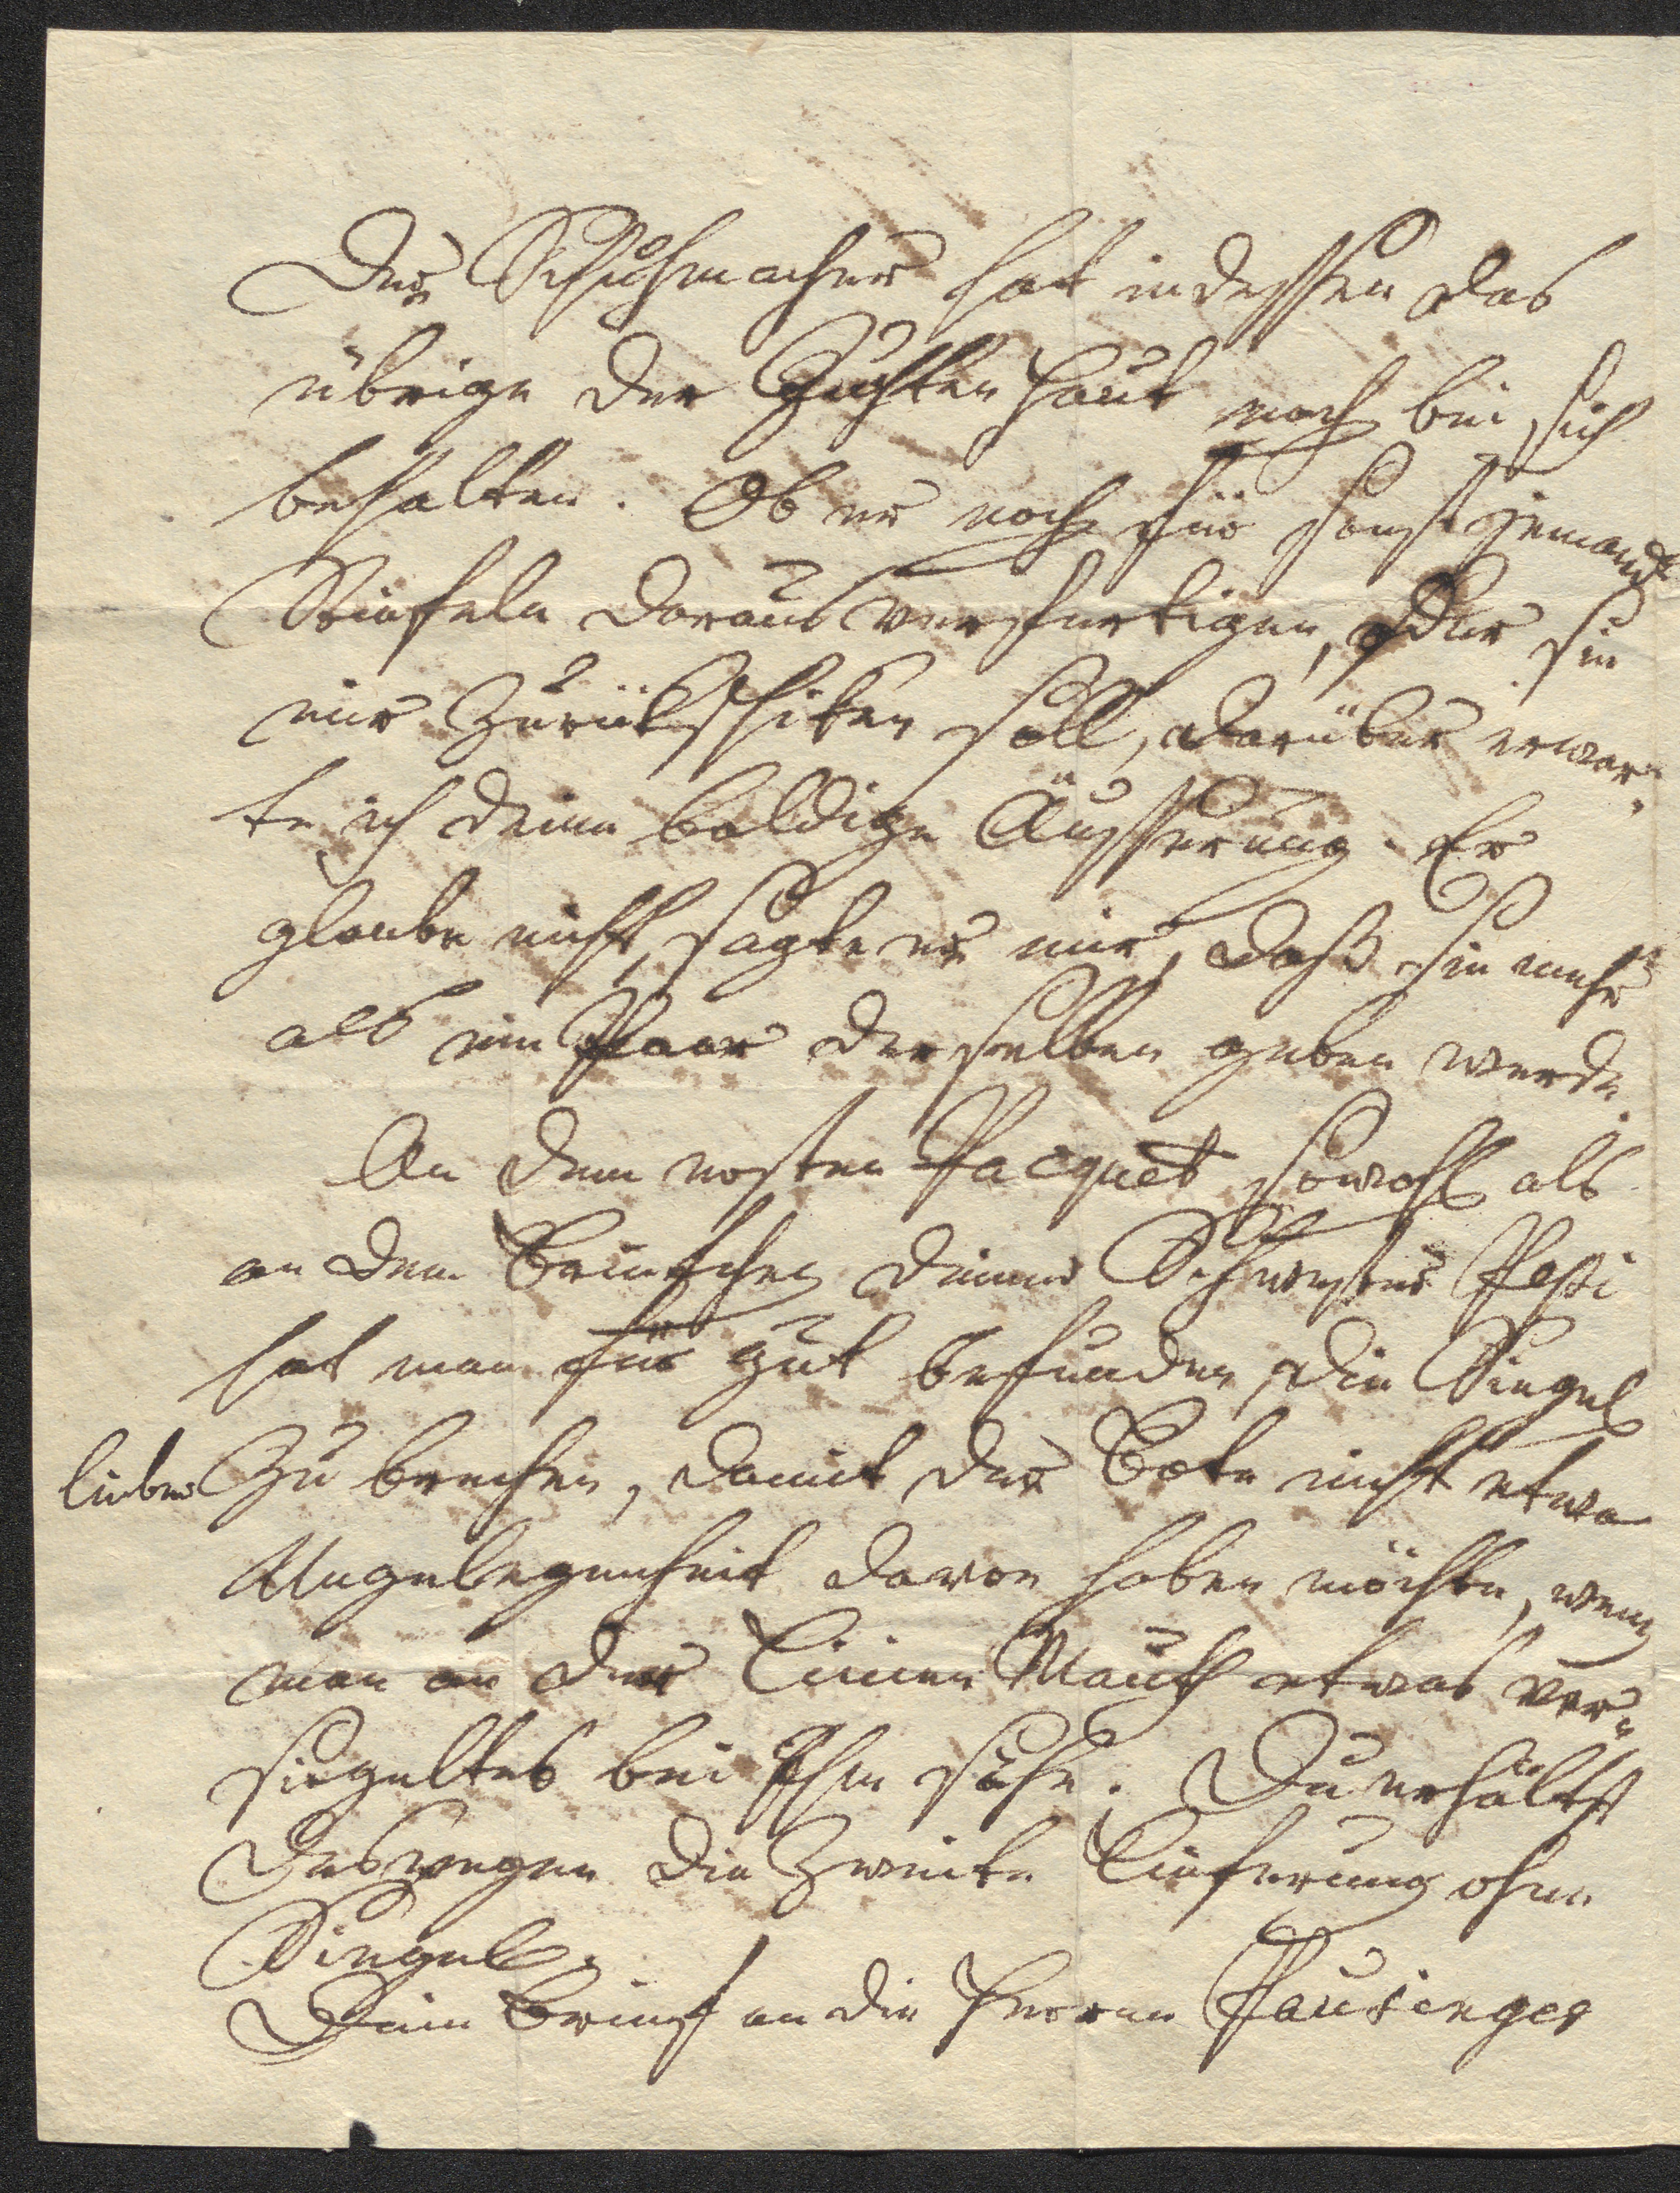 Der Schuhmacher hat indessen das
übrige der Juchten Haut noch bei sich
behalten. Ob er noch für sonst jemand
Stiefeln daraus verfertigen, oder sie
mir zurükschiken soll, darüber erwar-
te ich deine baldige Äusserung. Er
glaube nicht, sagte er mir, daß sie mehr
als ein Paar derselben geben werde.
An dem ersten Pacquet sowohl als
an dem Briefchen deiner Schwester Pepi
hat man für gut befunden, die Siegel
lieber zu brechen, damit der Bote nicht etwa
Ungelegenheit davon haben möchte, wenn
man an der Linien Mauth etwas ver-
siegeltes bei Ihm sähe. Du erhältst
deswegen die zweite Lieferung ohne
Siegel.
Dein Brief an die Herren Pausinger